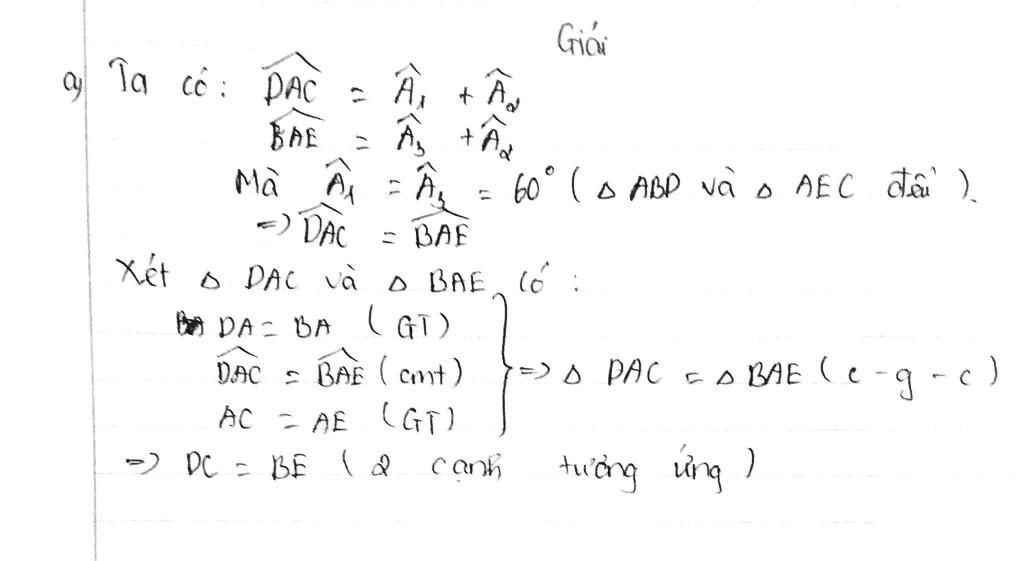 Giải
a) Ta có: \widehat{DAC} = \hat{A}₁ + \hat{A}₂
\widehat{BAE} = \hat{A}₃ + \hat{A}₂
Mà \hat{A}₁ = \hat{A}₃ = 60° (△ ABD và △ AEC đều).
=> \widehat{DAC} = \widehat{BAE}
Xét △ DAC và △ BAE có:
DA = BA (GT)
\widehat{DAC} = \widehat{BAE} (cmt) } => △ DAC = △ BAE (c - g - c)
AC = AE (GT)
=> DC = BE (2 cạnh tương ứng)